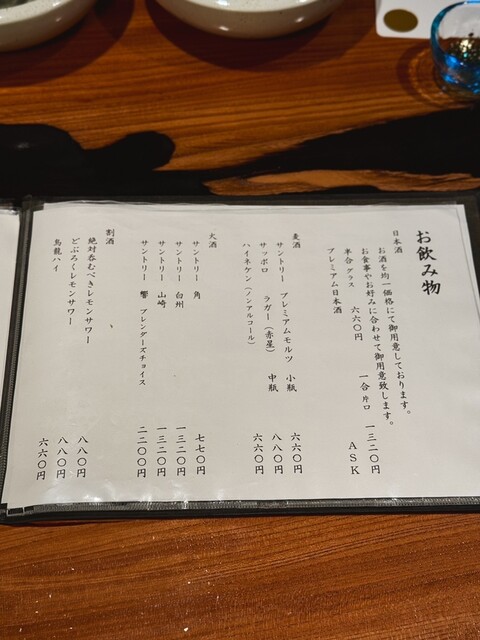 お飲み物
日本酒
お酒を均一価格にて御用意しております。
お食事やお好みに合わせて御用意致します。
半合 グラス 六六〇円 一合 片口 一三二〇円
プレミアム日本酒 ASK
麦酒
サントリー プレミアムモルツ 小瓶 六六〇円
サッポロ ラガー(赤星) 中瓶 八八〇円
ハイネケン(ノンアルコール) 六六〇円
火酒
サントリー 角 七七〇円
サントリー 白州 一三二〇円
サントリー 山崎 一三二〇円
サントリー 響 ブレンダーズチョイス 二二〇〇円
割酒
絶対呑むべきレモンサワー 八八〇円
どぶろくレモンサワー 八八〇円
烏龍ハイ 六六〇円